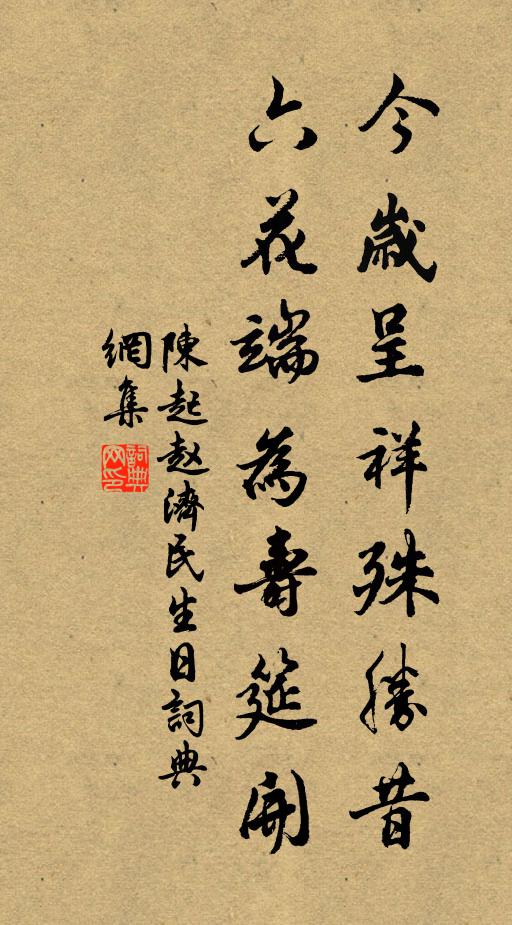 今歲呈祥殊勝昔
六花端為壽筵開
陳起赵濟民生日詞典
網集
詞典
网印